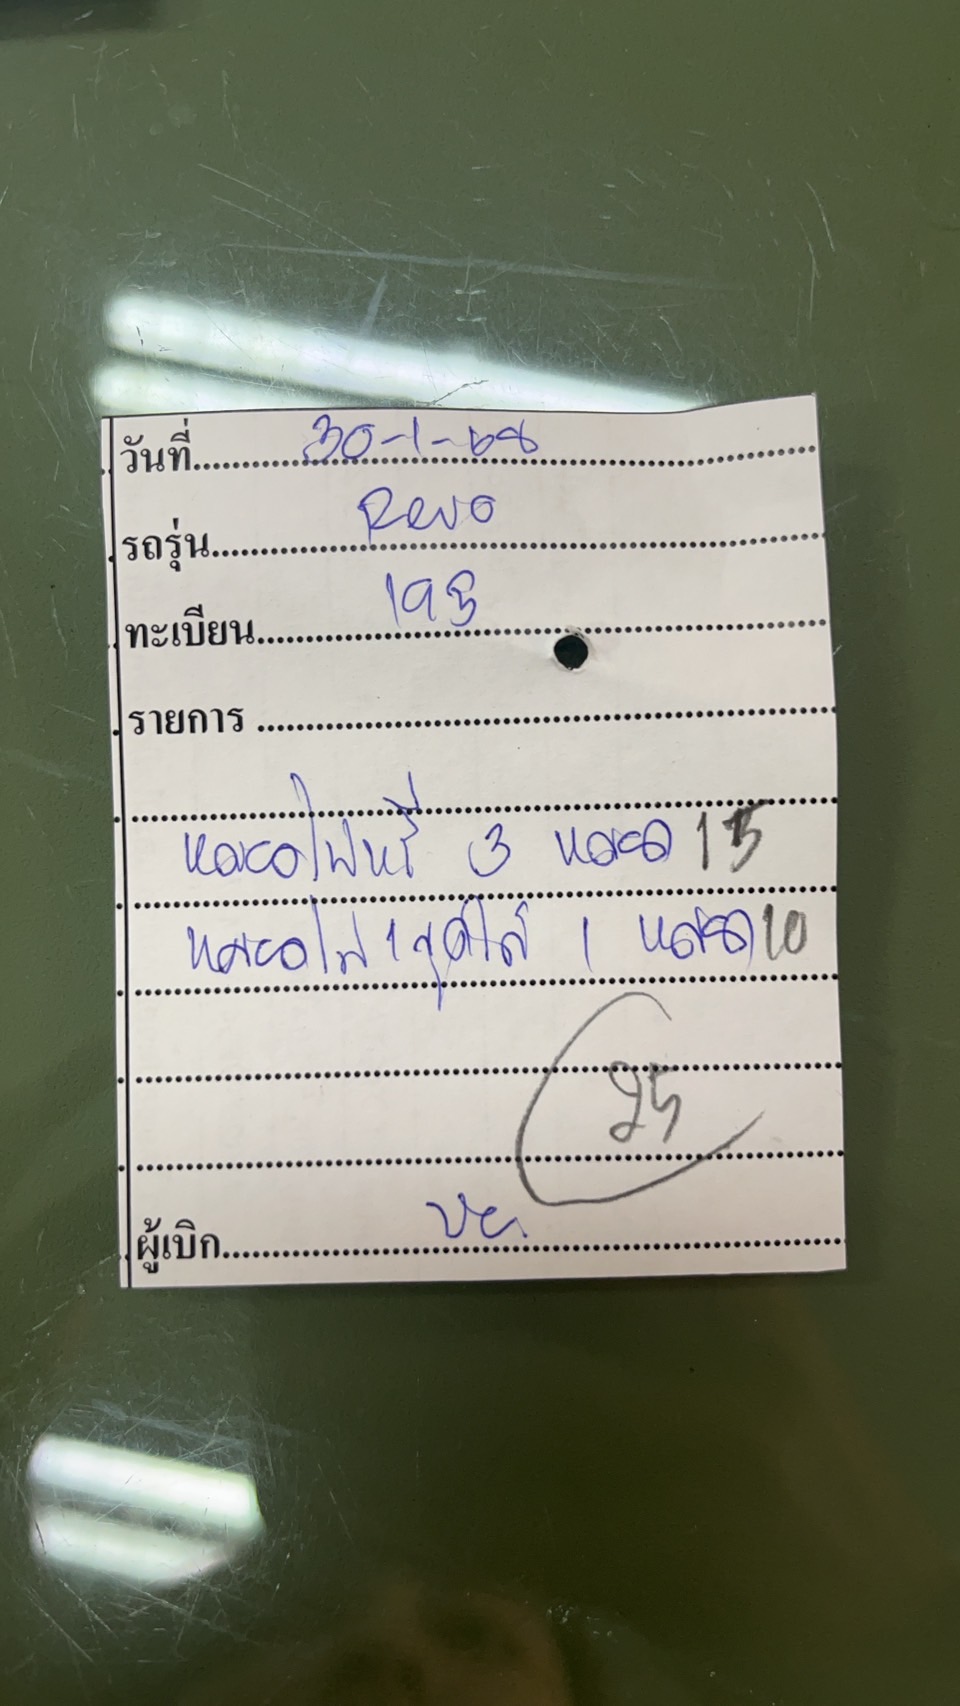 วันที่ 30-1-68
รถรุ่น Revo
ทะเบียน 195
รายการ
หลอดไฟหรี่ 3 หลอด 15
หลอดไฟ 1 จุดไส้ 1 หลอด 10
25
ผู้เบิก